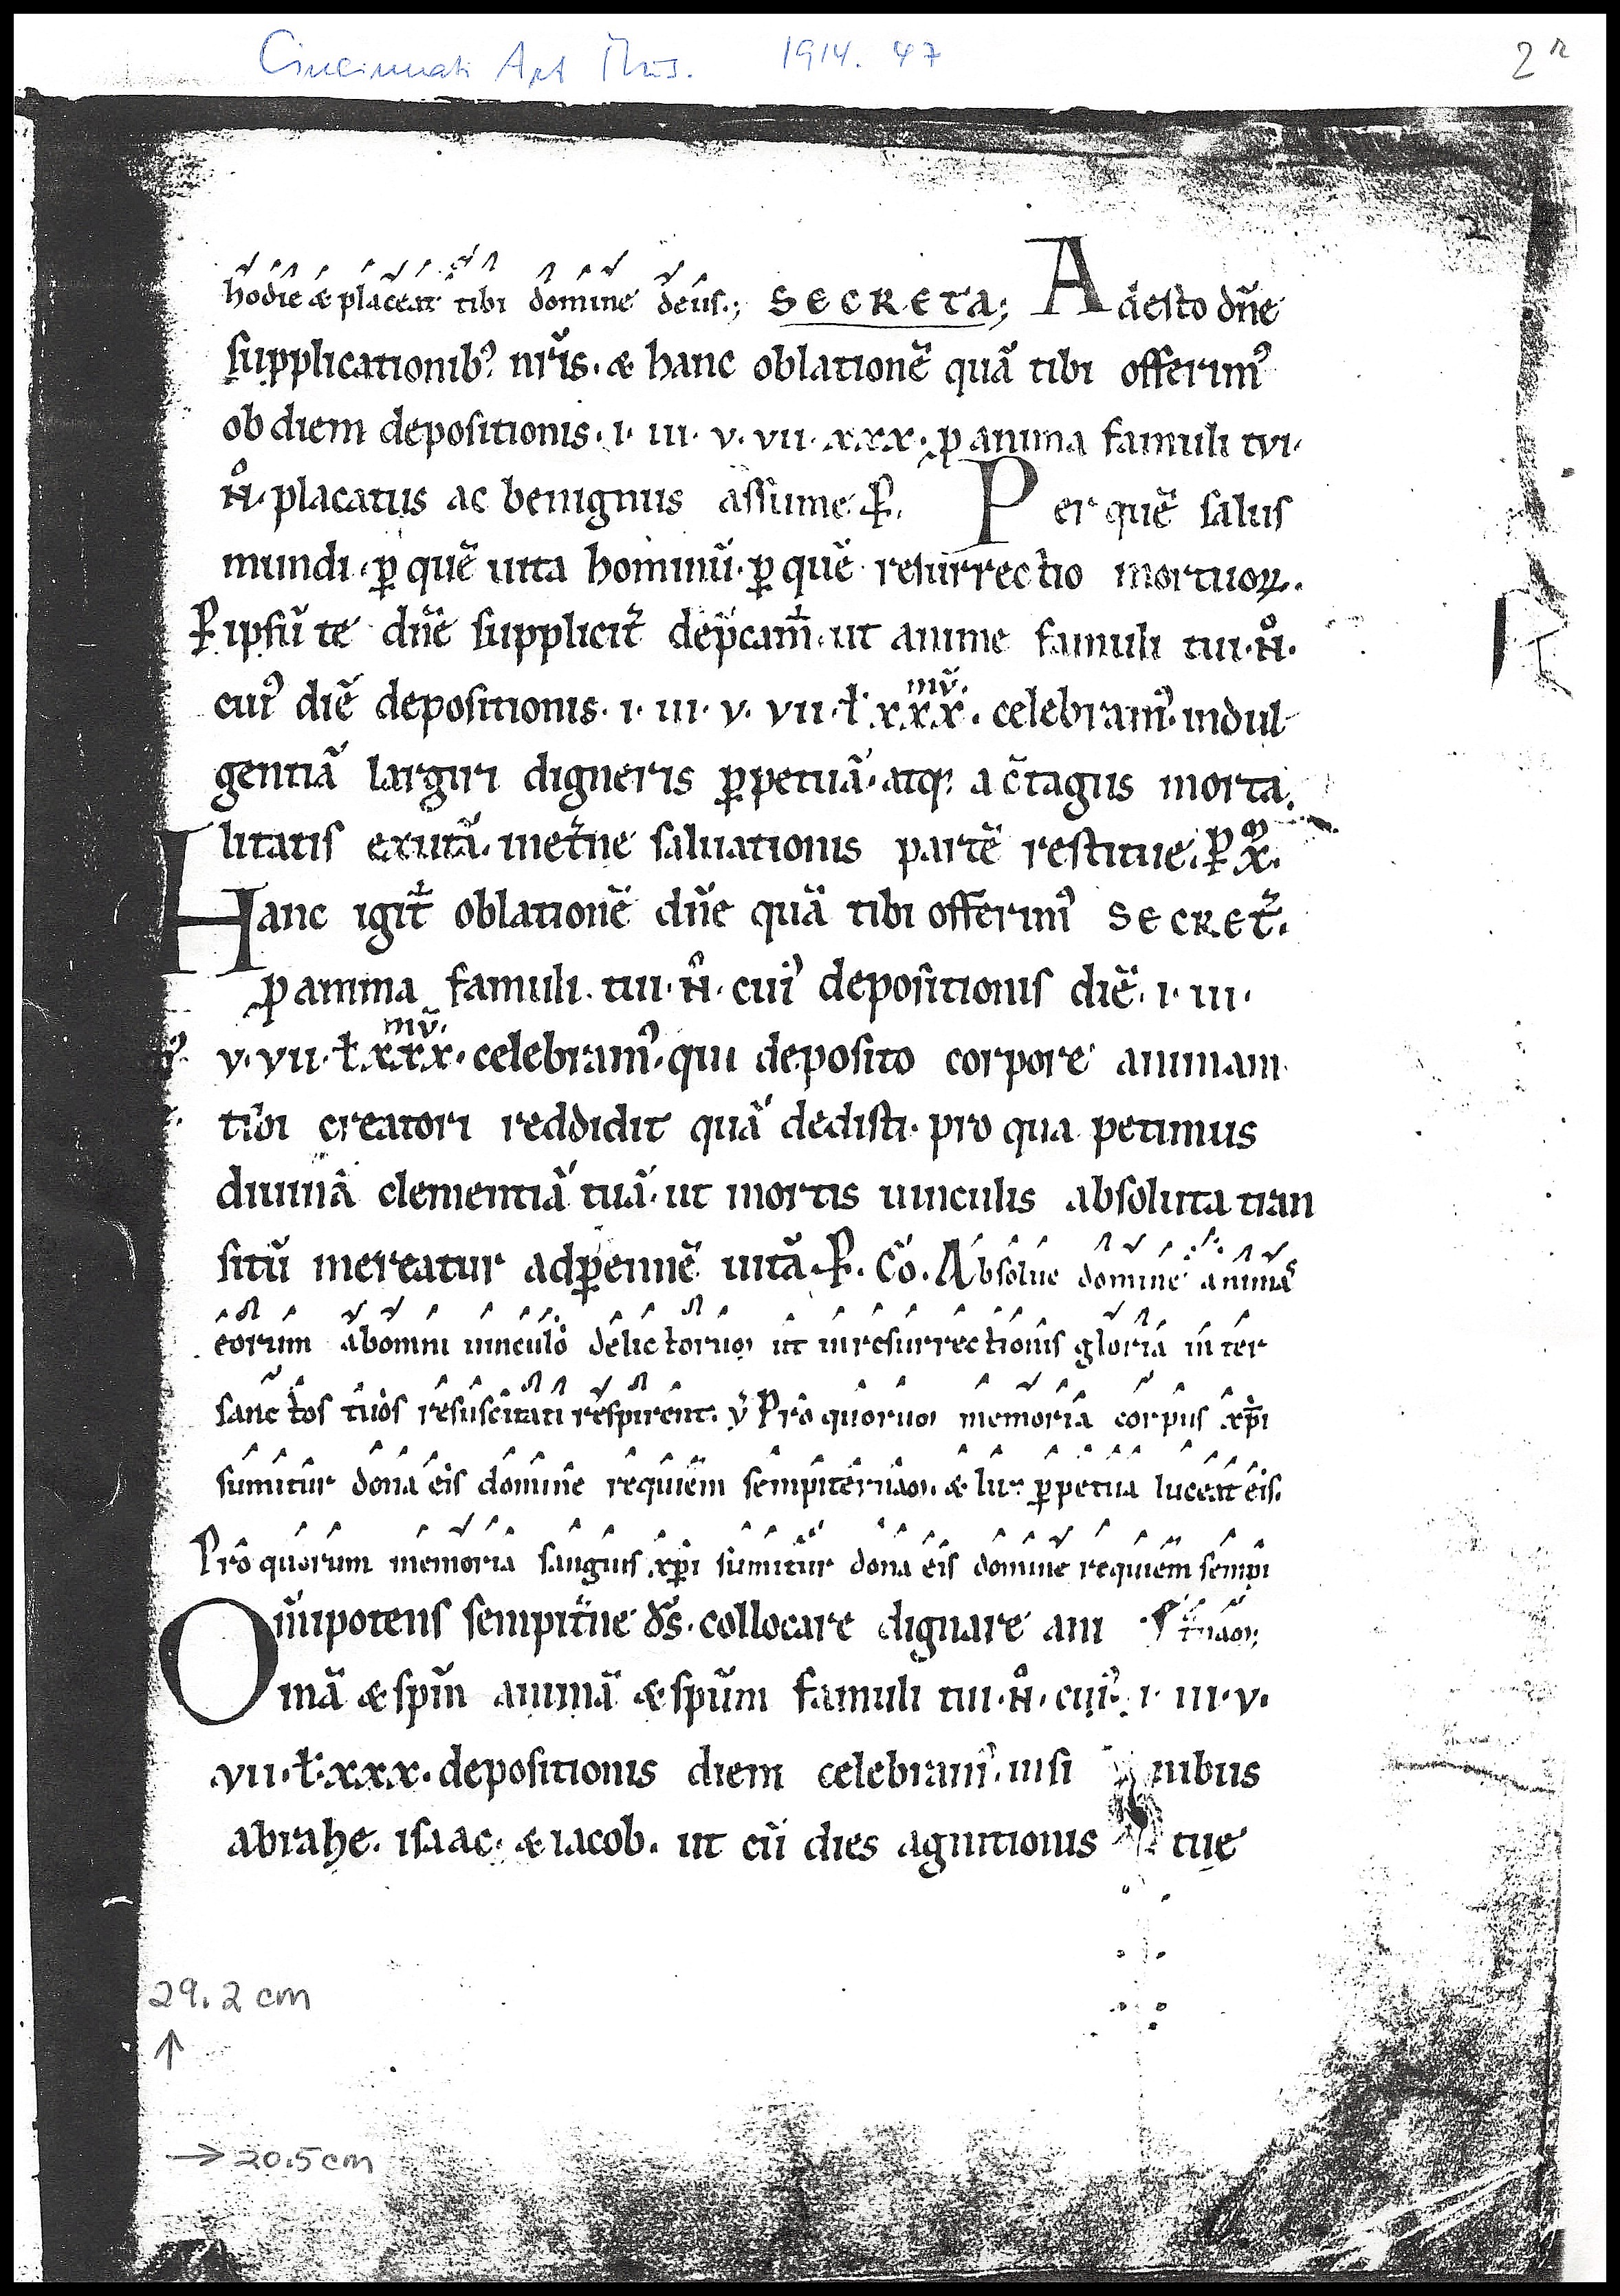 Cincinnati Art Mus. 1914. 47 2r
hodie & placeat tibi domine deus.; SECRETA; Adesto dñe
supplicationib; nr̃is. & hanc oblationẽ quã tibi offerim᾽
ob diem depositionis. i. iii. v. vii. xxx. ꝓ anima famuli tui.
N̊. placatus ac benignus assume. P̱. Per quẽ salus
mundi. ꝑ quẽ uita hominũ. ꝑ quẽ resurrectio mortuoꝝ.
P̱ ipsũ te dñe supplicit᷑ dep̃cam᷑. ut anime famuli tui. N̊.
cui᾽ diẽ depositionis. i. iii. v. vii. ł. xxx. mũ. celebram᾽. indul
gentiã largiri digneris ꝑpetuã. atq; a c̃tagiis morta
litatis exutã. in et᷑ne saluationis partẽ restitue. P̱ X̃.
Hanc igit᷑ oblationẽ dñe quã tibi offerim᾽ SECRET᷑.
ꝓ anima famuli tui. N̊. cui᾽ depositionis diẽ. i. iii.
v. vii. ł xxx. mũ. celebram᾽. qui deposito corpore animam
tibi creatori reddidit quã dedisti. pro qua petimus
diuinã clementiã tuã. ut mortis uinculis absoluta tran
sitũ mereatur ad ꝑennẽ uitã. P̱. Cõ. Absolue domine animã
eorum ab omni uinculo delictorum ut in resurrectionis gloria inter
sanctos tuos resuscitati respirent. ℣ Pro quorum memoria corpus xp̃i
sumitur dona eis domine requiem sempiternam. & lux ꝑpetua luceat eis.
Pro quorum memoria sanguis xp̃i sumitur dona eis domine requiem sempi
Om̃ipotens sempit᷑ne d̃s. collocare dignare ani t᷑nam;
mã & sp̃m animã & sp̃um famuli tui. N̊. cui᾽. i. iii. v.
vii. ł. xxx. depositionis diem celebram᾽. in si nibus
abrahe. isaac. & iacob. ut cũ dies agnitionis tue
29.2 cm
↑
→ 20.5 cm